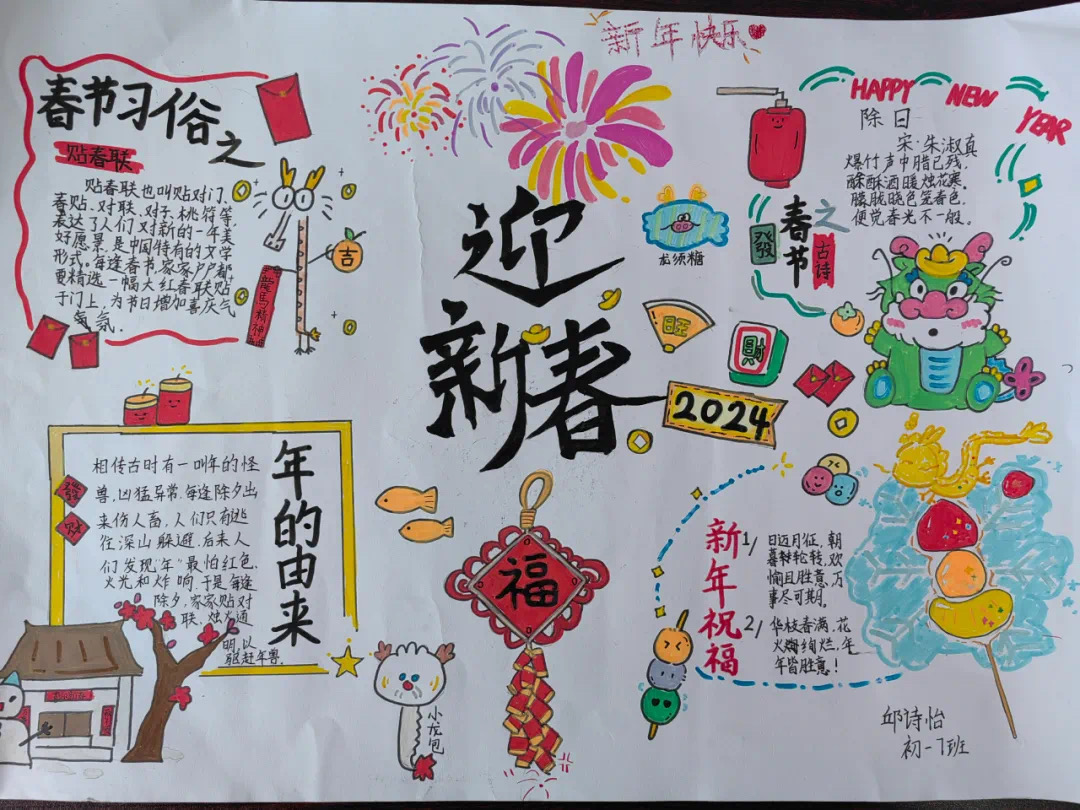 新年快乐
春节习俗之
贴春联
贴春联也叫贴对门、
春贴、对联、对子、桃符等
表达了人们对新的一年美
好愿景,是中国特有的文学
形式。每逢春节,家家户户都
要精选一幅大红春联贴
于门上,为节日增加喜庆气
氛.
吉
龍馬精神
迎
新春
龙须糖
旺
財
2024
HAPPY NEW YEAR
除日
宋·朱淑真
爆竹声中腊已残,
酴酥酒暖烛花寒。
朦胧晓色笼春色,
便觉春光不一般。
發
春节之
古诗
年的由来
相传古时有一叫年的怪
兽,凶猛异常.每逢除夕出
来伤人畜,人们只有逃
住深山躲避.后来人
们发现"年"最怕红色、
火光和炸响.于是每逢
除夕,家家贴对
联、烛火通
明,以
驱赶年兽.
發
财
福
小龙包
新年祝福
1/ 日迈月征,朝
暮轮转,欢
愉且胜意,万
事尽可期。
2/ 华枝春满,花
火绚烂,年
年皆胜意!
邱诗怡
初一7班